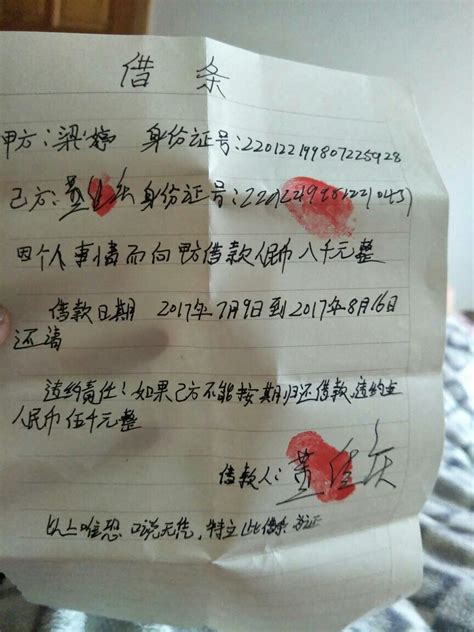 借条
甲方：梁婷 身份证号：220122199807225928
己方：董佳庆 身份证号：
因个人事情而向甲方借款人民币八千元整
借款日期 2017年7月9日到2017年8月16日
还清
违约责任：如果己方不能按期归还借款，违约金
人民币伍千元整
借款人：董佳庆
以上唯恐口说无凭，特立此借条为证